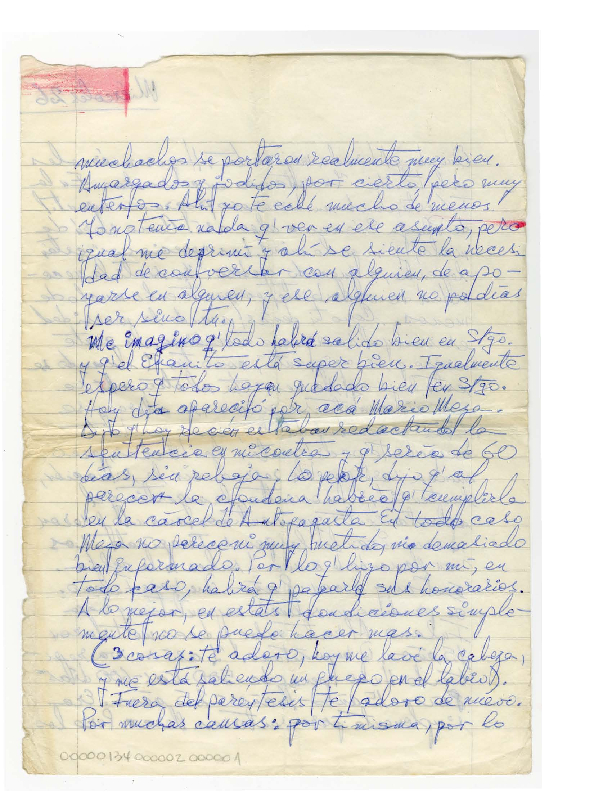 Miércoles 26
muchachos se portaron realmente muy bien.
Amargados y jodidos, por cierto, pero muy
enteros. Ahí yo te eché mucho de menos.
Yo no tenía nada q' ver en ese asunto, pero
igual me deprimí y ahí se siente la necesi
dad de conversar con alguien, de apo-
yarse en alguien, y ese alguien no podías
ser sino tú.
Me imagino q' todo habrá salido bien en Stgo.
y q' el Epanito está super bien. Igualmente
espero q' todos hayan quedado bien en Stgo.
Hoy día apareció por acá Mario Meza.
Dijo q' hoy recién estaban redactando la
sentencia en mi contra y q' sería de 60
días, sin rebaja. Lo peor, dijo q' al
parecer la condena habría q' cumplirla
en la cárcel de Antofagasta. En todo caso
Meza no parece ni muy metido, ni demasiado
bien informado. Por lo q' hizo por mí, en
todo caso, habrá q' pagarle sus honorarios.
A lo mejor, en estas condiciones simple-
mente no se puede hacer mas.
(3 cosas: te adoro, hoy me lavé la cabeza,
y me está saliendo un fuego en el labio).
Fuera del paréntesis te adoro de nuevo.
Por muchas causas: por ti misma, por lo
00000134 000002 00000 A